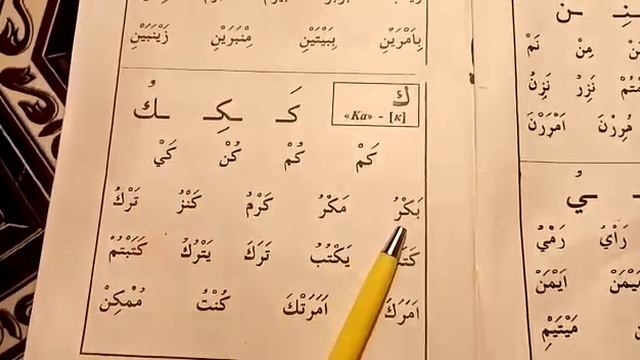 بِامْرَيْنِ بِبَيْتَيْنِ مِنْبَرَيْنِ زَيْنَبَيْنِ
ك
«Ka» - [к]
كَـ ـكِـ ـكُ
كَمْ كُمْ كُنْ كَيْ
بَكْرُ مَكْرُ كَرْمُ كَنْزُ تَرْكُ
يَكْتُبُ تَرَكَ يَتْرُكُ كَتَبْتُمْ
اَمَرَكَ اَمَرَتْكَ كُنْتُ مُمْكِنْ
مِنْ نَمْ
نَزِرُ نَزِنُ
اَمْرَرْنَ
ـيُ
رَأْيُ رَمْيُ
اَيْمَنْ
مَيْتَيْمِ